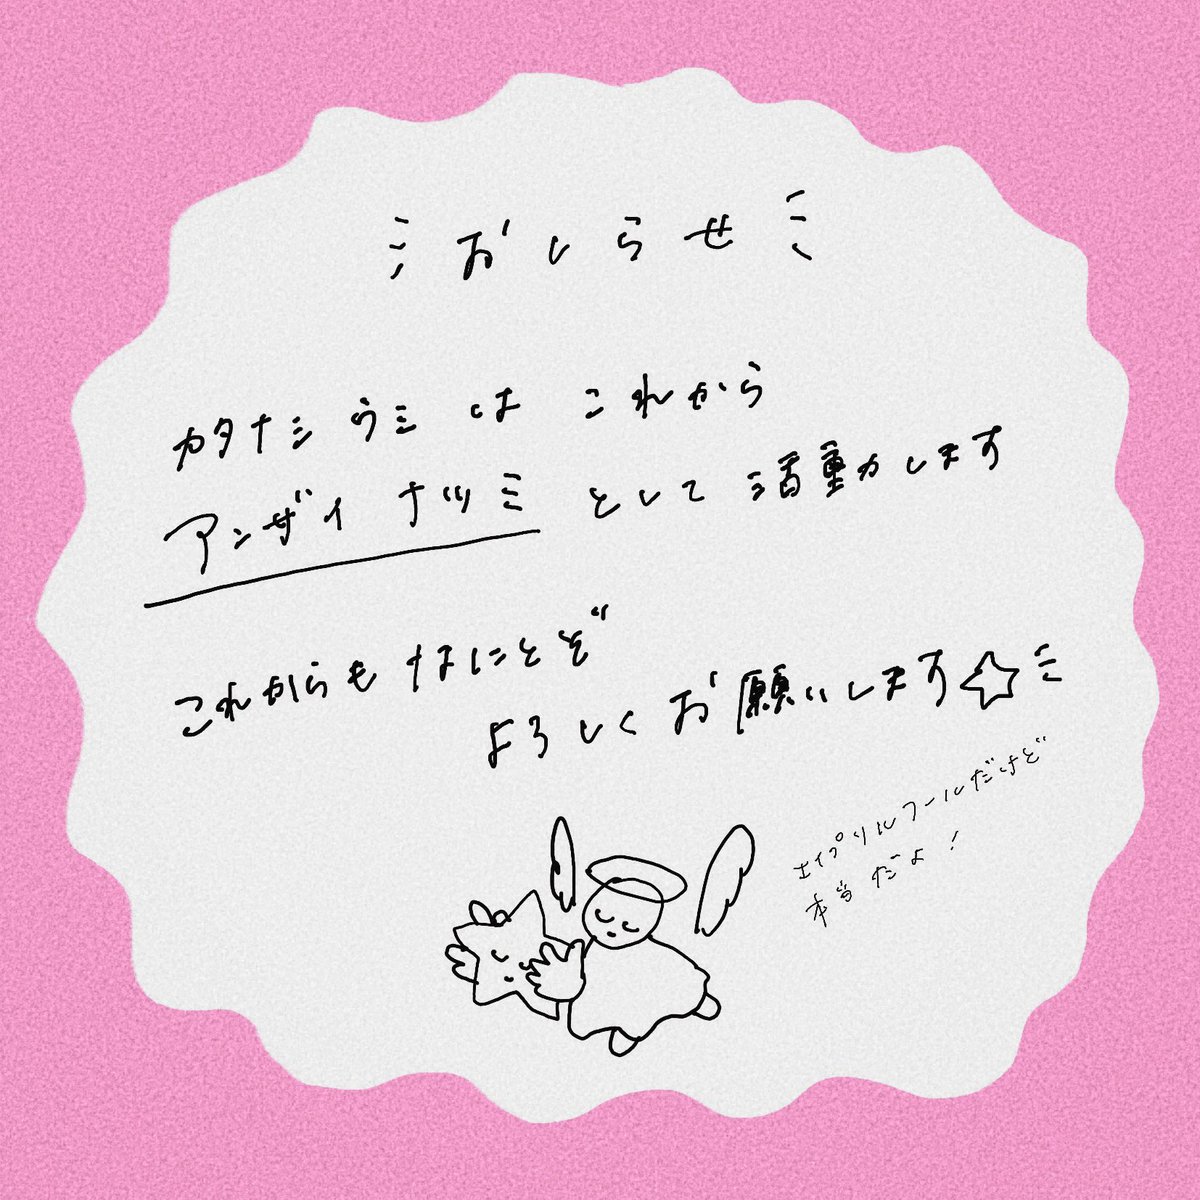 おしらせ
カタナシ ウミ は これから
アンザイ ナツミ として 活動します
これからも なにとぞ
よろしく お願いします☆ミ
エイプリルフールだけど
本当だよ!